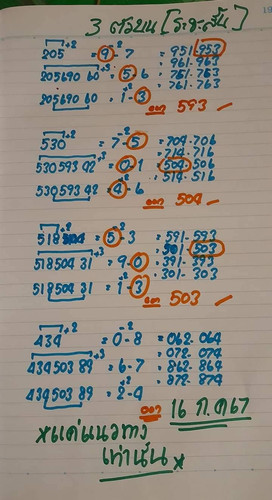 3 ตัวบน [ระยะสั้น]
205 +2 = 9-7 = 951 953
961-963
205690 60 +3 = 5-6 = 751-753
761-763
205690 60 = 1-3
ออก 593
530 +2 = 7-5 = 704-706
714-716
530593 42 +3 = 0-1 = 504-506
514-516
530593 42 = 4-6
ออก 504
518 +2 = 5-3 = 591-593
501 503
518504 31 +3 = 9-0 = 391-393
301-303
518504 31 = 1-3
ออก 503
434 +2 = 0-8 = 062-064
072-074
434503 89 +3 = 6-7 = 862-864
872-874
434503 89 = 2-4
ออก 16 ก.ค 67
*แค่แนวทาง
เท่านั้น*